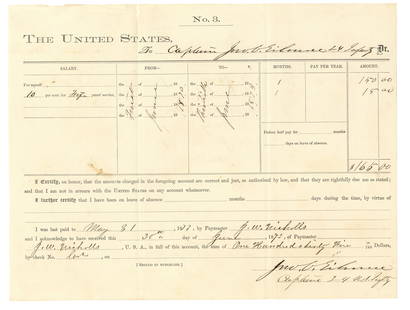 No. 3.
THE UNITED STATES,
To Captain Jno. C. 24 Infty Dr.
SALARY. FROM— TO— MONTHS. PAY PER YEAR. AMOUNT.
For myself 1 150 00
10 per cent for five years' service, 1 15 00
the First the
June
June
Deduct half pay for months
days on leave of absence.
$165 00
I Certify, on honor, that the amounts charged in the foregoing account are correct and just, as authorized by law, and that they are rightfully due me as stated;
and that I am not in arrears with the UNITED STATES on any account whatsoever.
I further certify that I have been on leave of absence months days during the time, by virtue of
I was last paid to May 31 187 , by Paymaster J. W. Nicholls
and I acknowledge to have received this 30th day of June 187 , of Paymaster
J. W. Nicholls, U. S. A., in full of this account, the sum of One Hundred Sixty Five Dollars,
by check No. on
[SIGNED IN DUPLICATE.]
Jno. C.
Captain 24th Infty